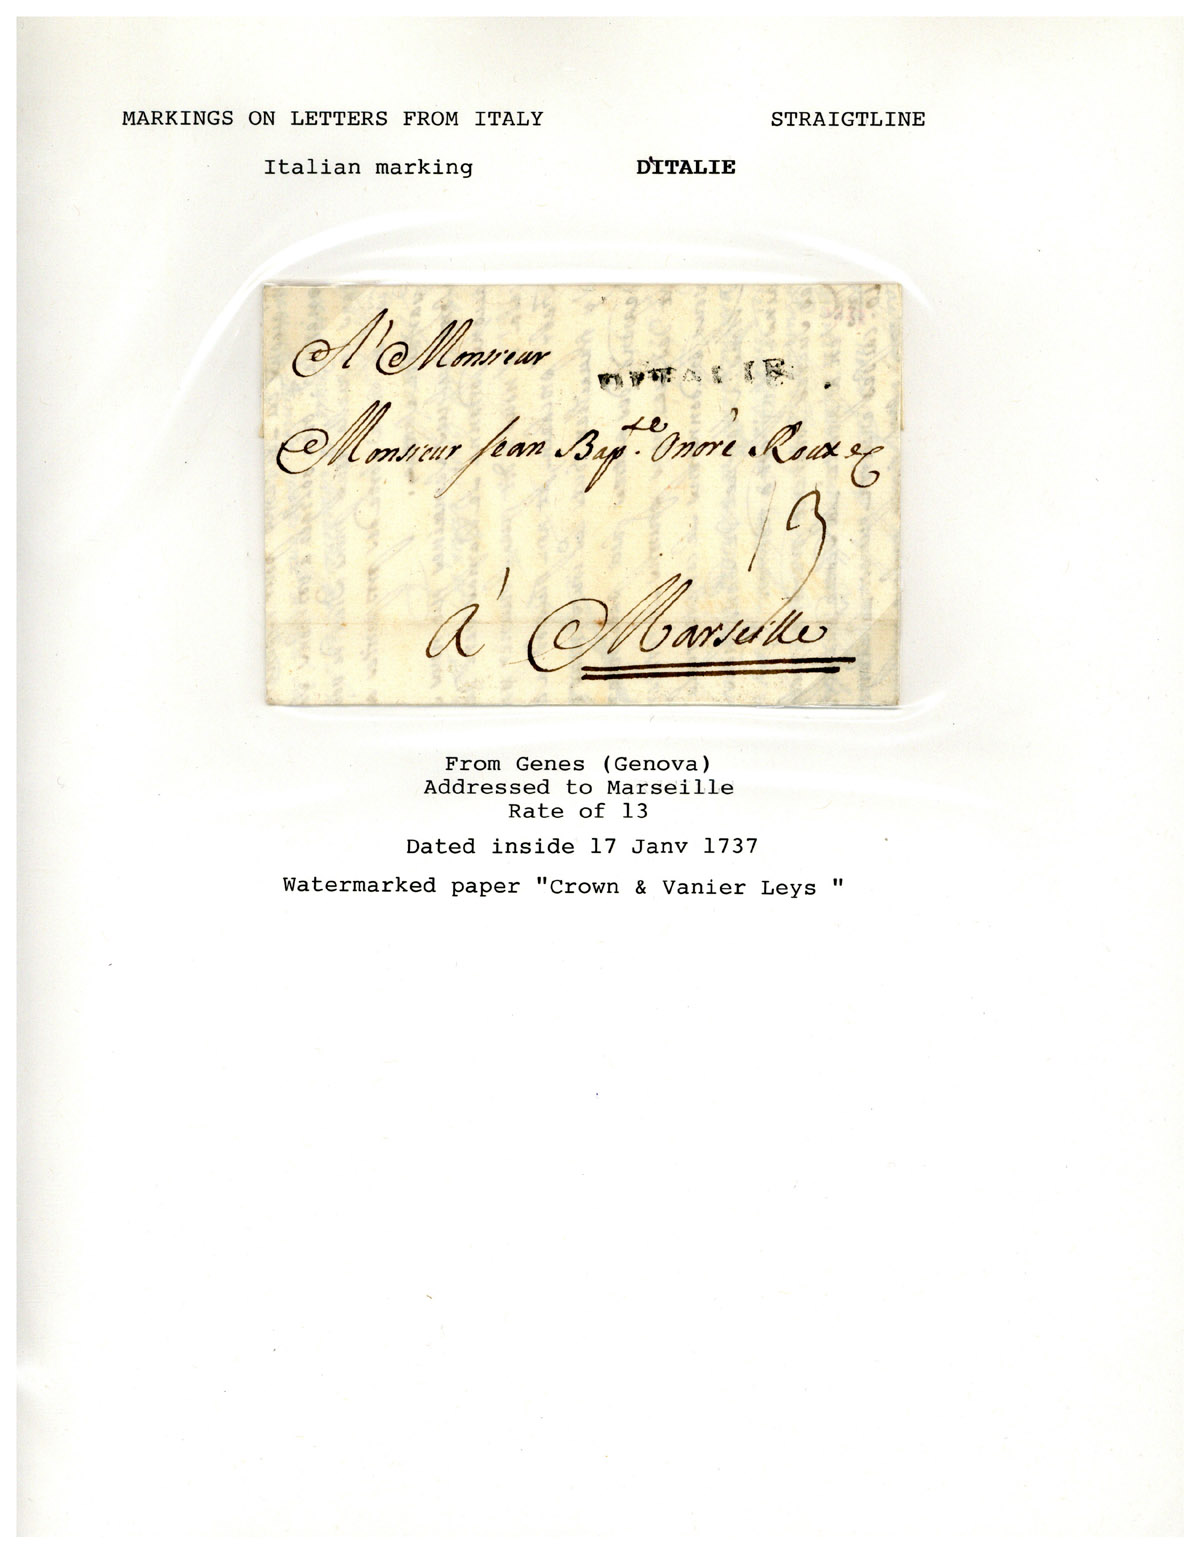 MARKINGS ON LETTERS FROM ITALY STRAIGTLINE
Italian marking D'ITALIE
A' Monsieur
D'ITALIE
Monsieur Jean Bap.te Onoré Roux &C
13
à Marseille
From Genes (Genova)
Addressed to Marseille
Rate of 13
Dated inside 17 Janv 1737
Watermarked paper "Crown & Vanier Leys "